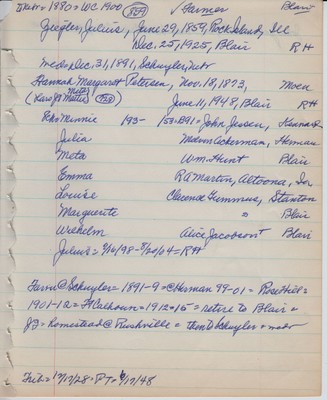 1880 = WC 1900 (859) ✓ Farmer Blair
Ziegler, Julius, June 29, 1859, Rock Island, Ill
Dec. 25, 1925, Blair RH
Wed = Dec. 31, 1891, Schuyler, Nebr
Hannah Margaret Petersen, Nov. 18, 1873, Moen
June 11, 1948, Blair RH
Minnie 193- John Jensen, Kennard
Julia Ackerman, Herman
Meta Wm. Hunt Blair
Emma R A Marton, Altoona, Ia
Louise Clarence Gummus, Stanton
Marguerite " Blair
Wilhelm Alice Jacobson Blair
Julius = 9/10/98 - 8/20/04 = RH
Farm @ Schuyler = 1891-9 = @ Herman 99-01 = Rose Hill =
1901-12 = Ft Calhoun = 1912-15 = retire to Blair =
JZ = homestead @ Rushville = then to Schuyler +
Trib = 12/17/28 = PT = 6/17/48